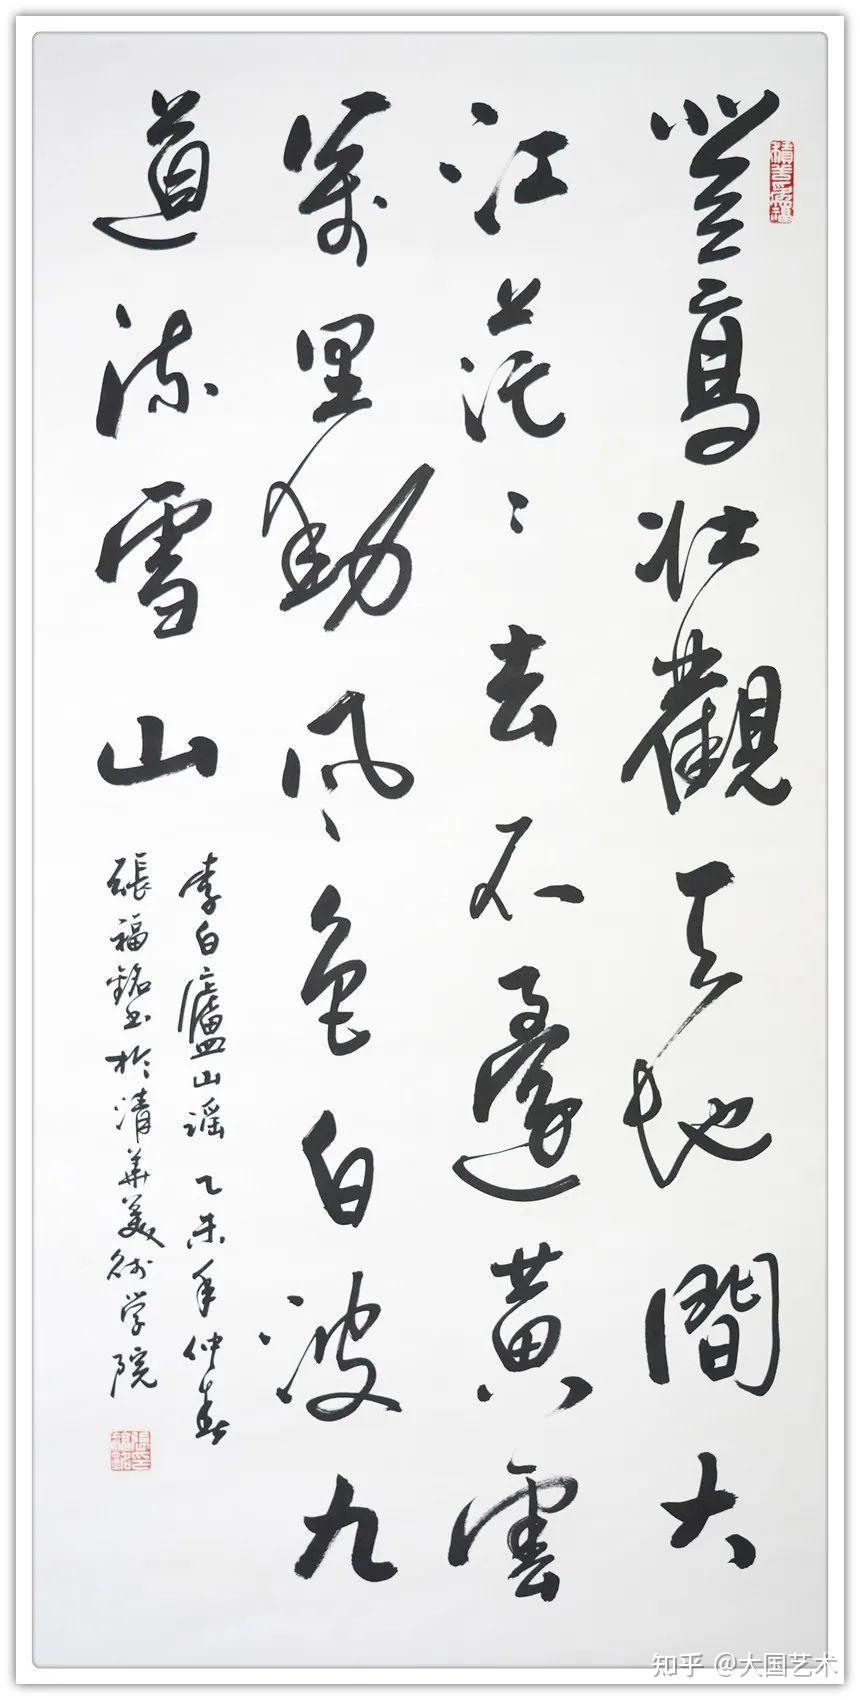 登高壯觀天地間大
江茫〻去不還黃雲
萬里動風色白波九
道流雪山
李白廬山謠 乙未年仲春
張福銘书於清華美術学院
積善受福
張福銘印
知乎 @大国艺术